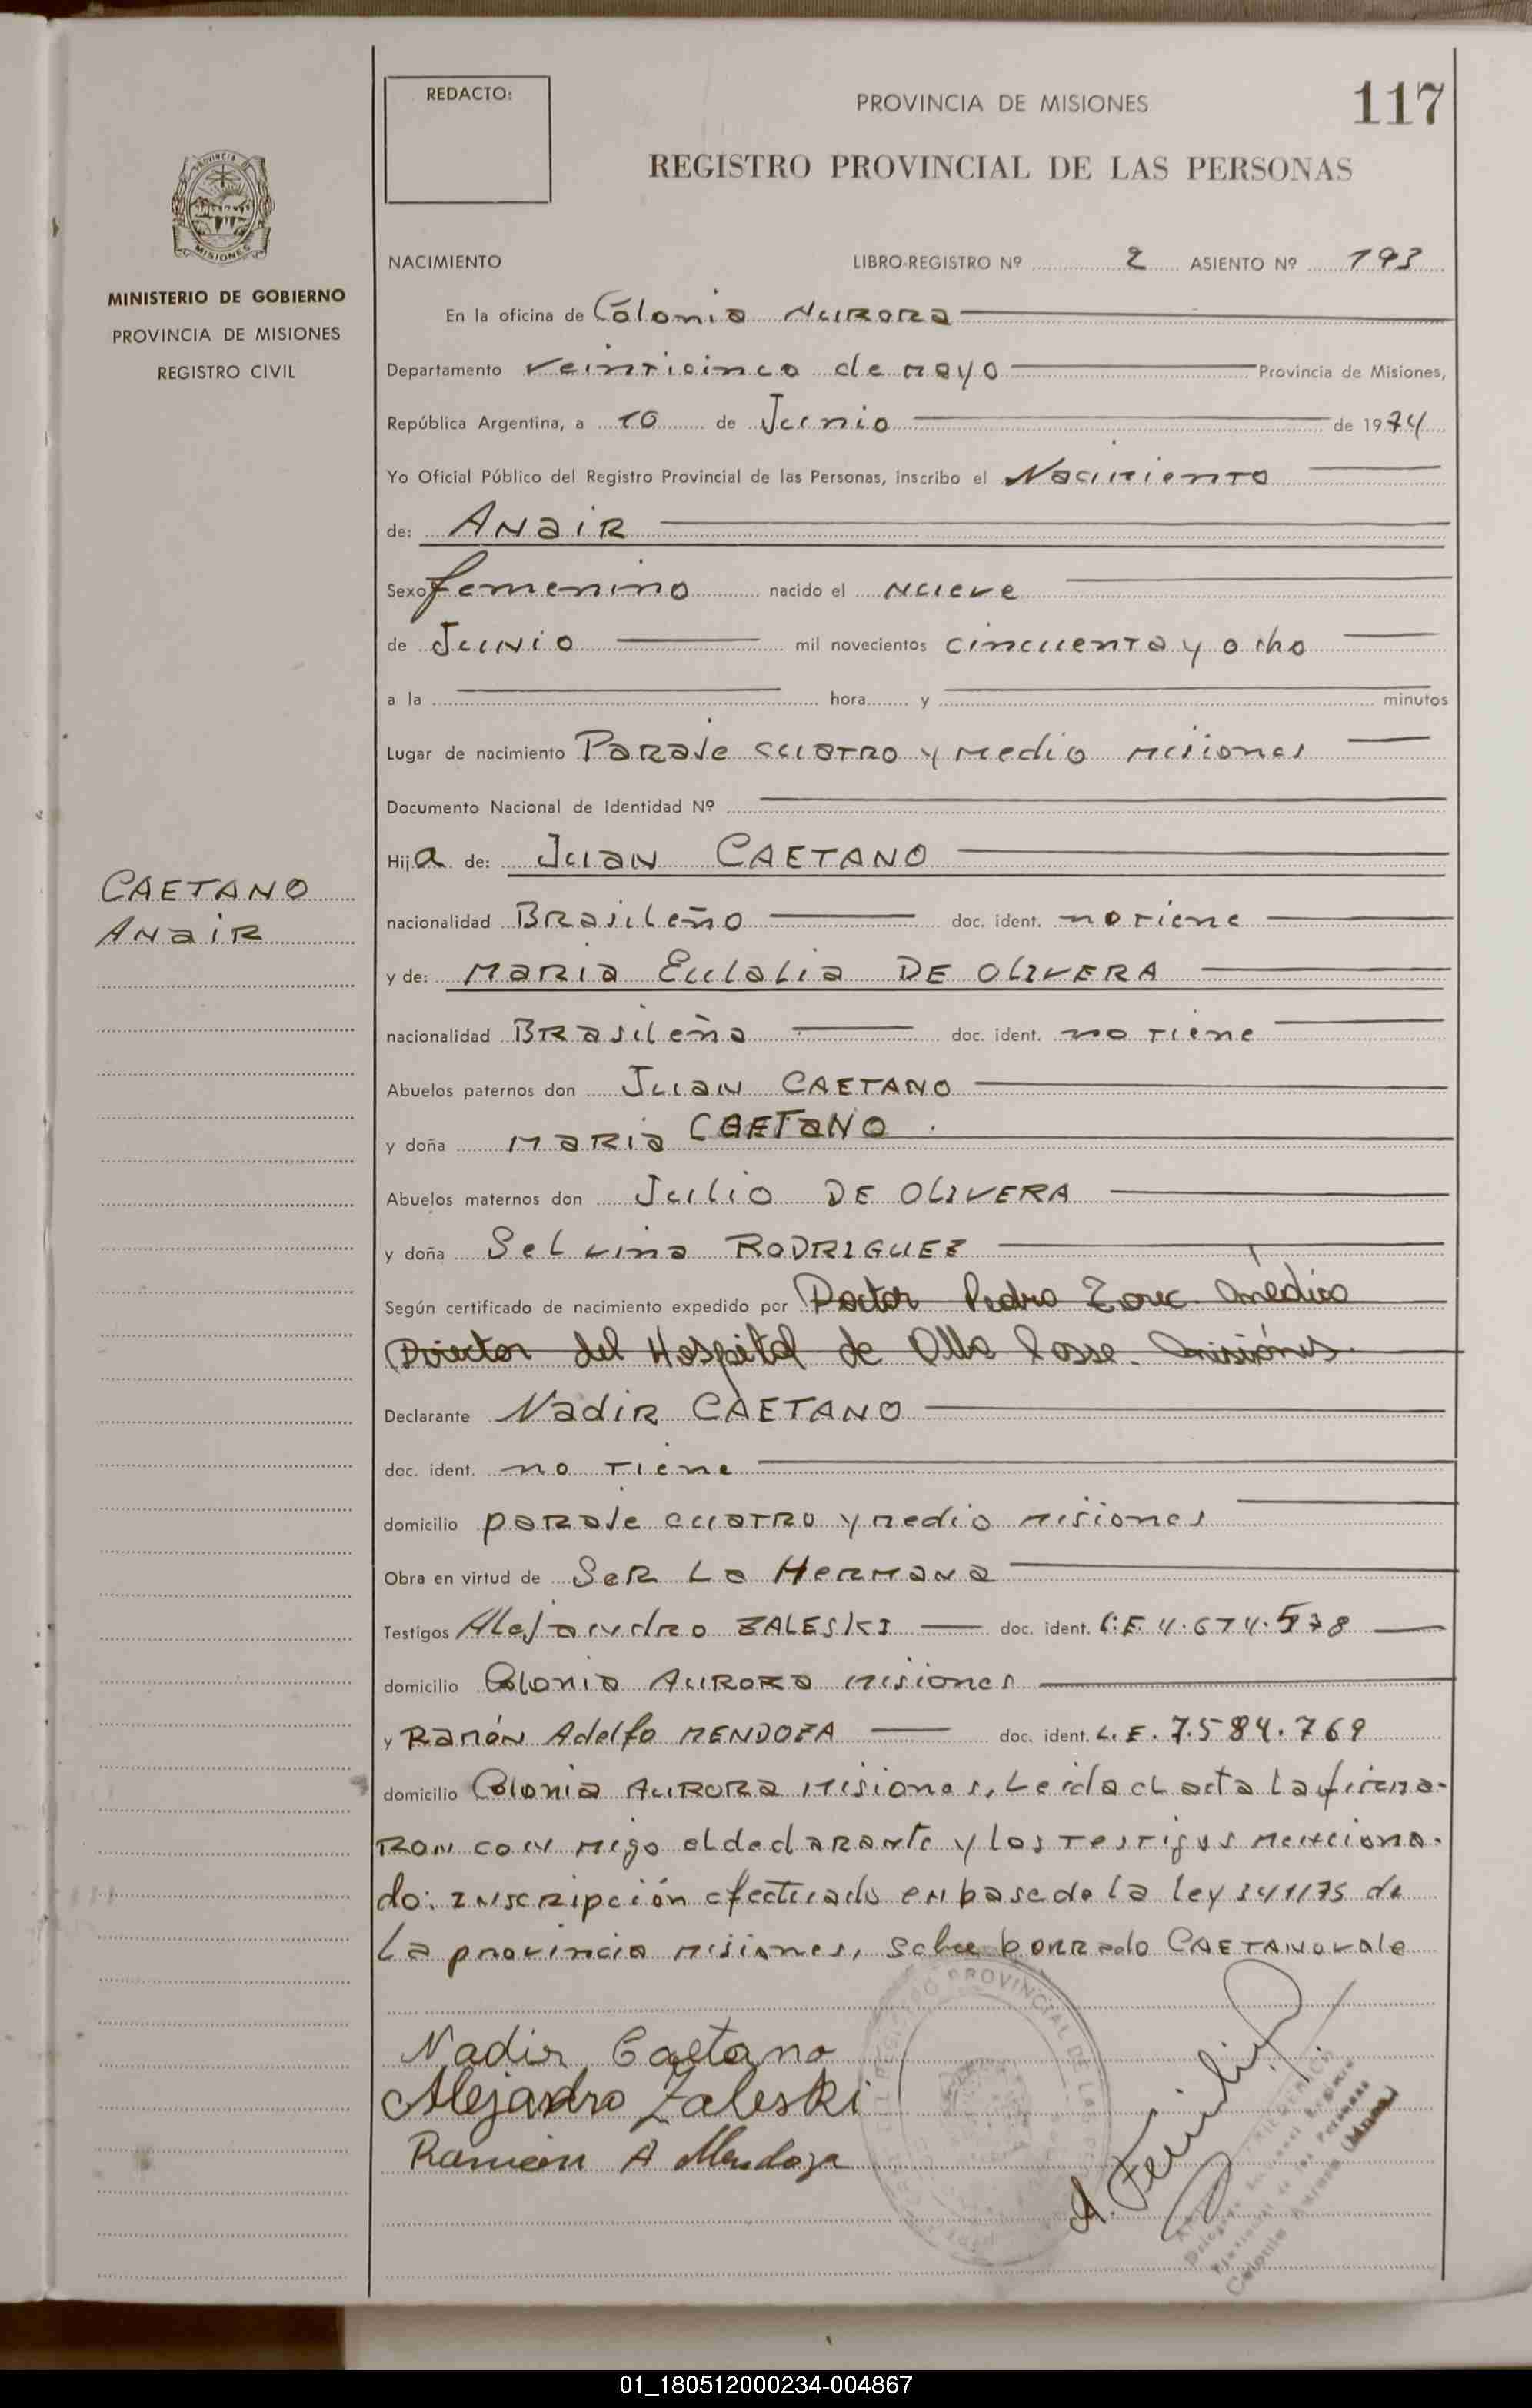 REDACTO:
PROVINCIA DE MISIONES
117
REGISTRO PROVINCIAL DE LAS PERSONAS
PROVINCIA DE
MISIONES
MINISTERIO DE GOBIERNO
PROVINCIA DE MISIONES
REGISTRO CIVIL
NACIMIENTO LIBRO-REGISTRO Nº 2 ASIENTO Nº 193
En la oficina de Colonia Aurora
Departamento veinticinco de mayo Provincia de Misiones,
República Argentina, a 10 de Junio de 1974
Yo Oficial Público del Registro Provincial de las Personas, inscribo el Nacimiento
de: Anair
Sexo femenino nacido el nueve
de Junio mil novecientos cincuenta y ocho
a la hora y minutos
Lugar de nacimiento Paraje cuatro y medio misiones
Documento Nacional de Identidad Nº
Hija de: Juan CAETANO
CAETANO
Anair
nacionalidad Brasileño doc. ident. no tiene
y de: Maria Eulalia DE OLIVERA
nacionalidad Brasileña doc. ident. no tiene
Abuelos paternos don Juan CAETANO
y doña Maria CAETANO.
Abuelos maternos don Julio DE OLIVERA
y doña Selvina RODRIGUEZ
Según certificado de nacimiento expedido por Doctor Pedro médico
Director del Hospital de misiones.
Declarante Nadir CAETANO
doc. ident. no tiene
domicilio paraje cuatro y medio misiones
Obra en virtud de Ser La Hermana
Testigos Alejandro ZALESKI doc. ident. 4.674.578
domicilio Colonia Aurora misiones
y Ramón Adelfo MENDOZA doc. ident. L.E. 7.584.769
domicilio Colonia Aurora misiones, Leida el acta la firma-
ron con migo el declarante y los testigos menciona-
do: inscripción efectuado en base de la ley 341/75 de
La provincia misiones, sobre borrado CAETANO vale
Nadir Caetano
Alejandro Zaleski
Ramón A Mendoza
01_180512000234-004867